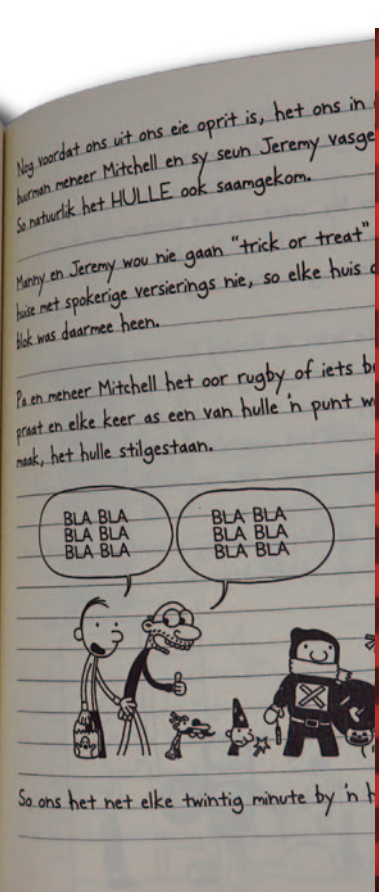 Nog voordat ons uit ons eie oprit is, het ons in
buurman meneer Mitchell en sy seun Jeremy
So natuurlik het HULLE ook saamgekom.
Manny en Jeremy wou nie gaan "trick or treat"
huise met spokerige versierings nie, so elke huis
blok was daarmee heen.
Pa en meneer Mitchell het oor rugby of iets
praat en elke keer as een van hulle 'n punt
maak, het hulle stilgestaan.
BLA BLA
BLA BLA
BLA BLA
BLA BLA
BLA BLA
BLA BLA
So ons het net elke twintig minute by 'n